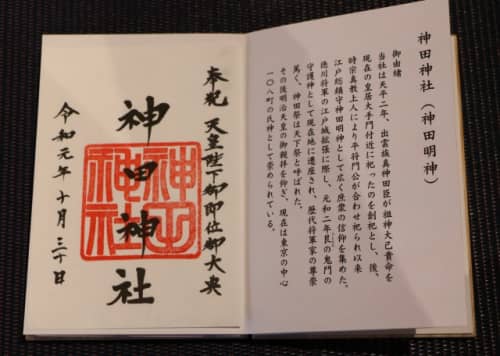 神田神社（神田明神）
御由緒
当社は天平二年、出雲族真神田臣が祖神大己貴命を
現在の皇居大手門付近に祀ったのを創祀とし、後、
時宗真教上人により平将門公が合わせ祀られ以来
江戸総鎮守神田明神として広く庶衆の信仰を集めた。
徳川将軍の江戸城拡張に際し、元和二年艮の鬼門の
守護神として現在地に遷座され、歴代将軍家の尊崇
篤く、神田祭は天下祭と呼ばれた。
その後明治天皇の御親拝を仰ぎ、現在は東京の中心
一〇八町の氏神として崇められている。
奉祝 天皇陛下御即位御大典
神田神社
神田
神社
令和元年十月三十日